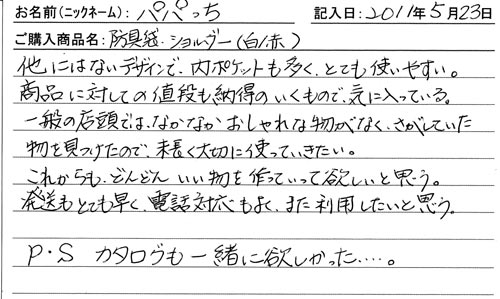 お名前(ニックネーム): パパっち 記入日:2011年5月23日
ご購入商品名: 防具袋・ショルダー(白/赤)
他にはないデザインで、内ポケットも多く、とても使いやすい。
商品に対しての値段も納得のいくもので、気に入っている。
一般の店頭では、なかなかおしゃれな物がなく、さがしていた
物を見つけたので、末長く大切に使っていきたい。
これからも、どんどんいい物を作っていって欲しいと思う。
発送もとても早く、電話対応もよく、また利用したいと思う。
P・S カタログも一緒に欲しかった・・・・。